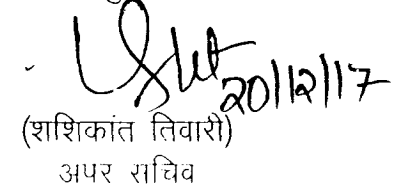 20/12/17
(शशिकांत तिवारी)
अपर सचिव